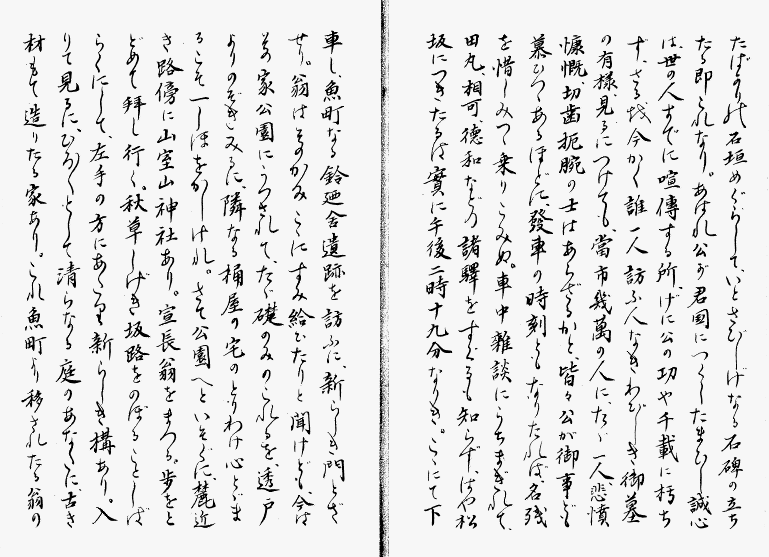 たばかりの石垣めぐらして、いとさびしげなる石碑の立ち
たる即これなり。あはれ公が君國につくしたまひし誠心
は、世の人すでに喧傳する所、げに公の功や千載に朽ち
ず、さるを今かく誰一人訪ふ人なきわびしき御墓
の有樣見るにつけても、當市幾萬の人に、たゞ一人悲憤
慷慨、切齒扼腕の士はあらざるかと、皆々公が御事ども
慕ひつゝあるほどに、發車の時刻ともなりたれば名殘
を惜しみつゝ乘りこみぬ。車中雜談にうちまぎれて、
田丸、相可、德和などの諸驛をすぐるも知らず、はや松
坂につきたるは實に午後二時十九分なりき。こゝにて下
車し、魚町なる鈴廼舍遺跡を訪ふに、新らしき門とざ
せり。翁はそのかみこゝにすみ給ひたりと聞けども、今は
その家公園にうつされて、たゞ礎のみのこれるを、透戸
よりのぞきみるに、隣なる桶屋の宅のとりわけ心とゞま
るこそ一しほをかしけれ。さて公園へといそぐに、麓近
き路傍に山室山神社あり。宣長翁をまつる。歩をと
どめて拜し行く。秋草しげき坂路をのぼることしば
らくにして、左手の方にあたり新らしき構あり。入
りて見るに、ひろ〴〵として清らなる庭のあなたに、古き
材もて造りたる家あり。これ魚町より移されたる翁の